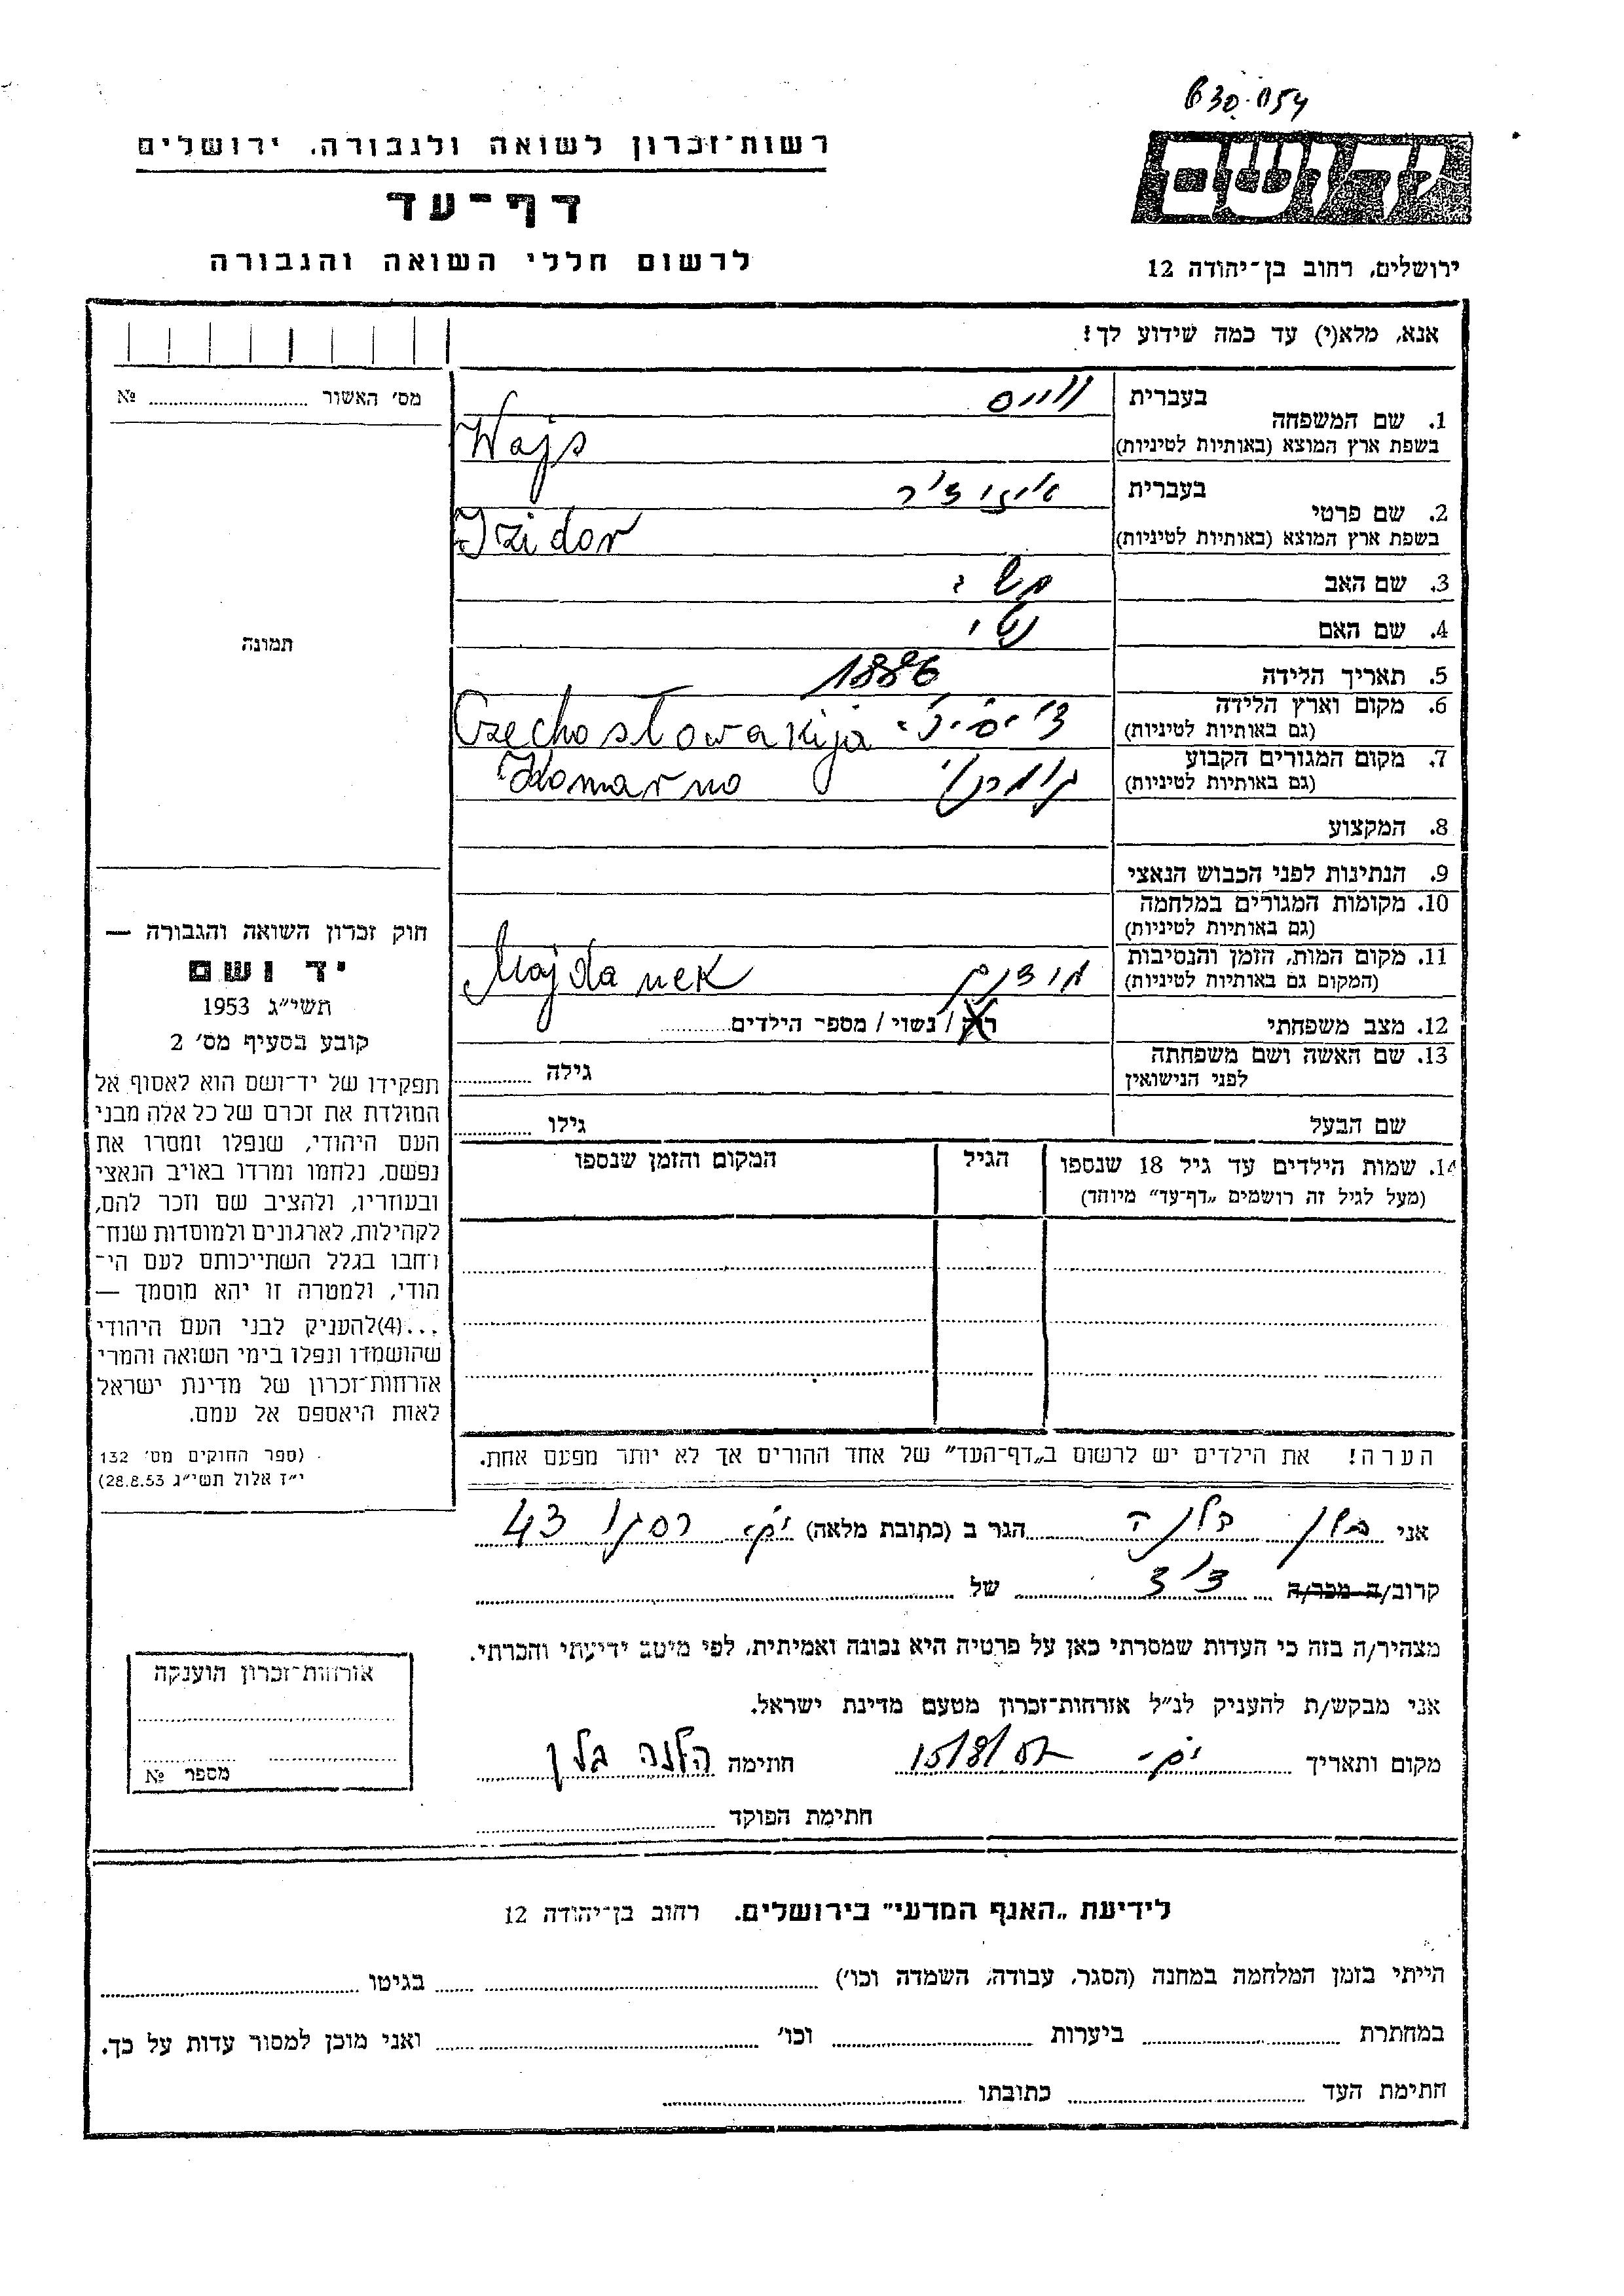 630.054
רשות־זכרון לשואה ולגבורה. ירושלים
דף־עד
לרשום חללי השואה והגבורה
יד ושם
ירושלים, רחוב בן־יהודה 12
אנא, מלא(י) עד כמה שידוע לך!
מס׳ האשור № 
1. שם המשפחה
בעברית ווייס
בשפת ארץ המוצא (באותיות לטיניות) Wajs
2. שם פרטי
בעברית איזידור
בשפת ארץ המוצא (באותיות לטיניות) Izidor
3. שם האב משה
4. שם האם
5. תאריך הלידה 1886
6. מקום וארץ הלידה
(גם באותיות לטיניות) Czechosłowakija
7. מקום המגורים הקבוע
(גם באותיות לטיניות) Komarno
8. המקצוע
9. הנתינות לפני הכבוש הנאצי
10. מקומות המגורים במלחמה
(גם באותיות לטיניות)
11. מקום המות, הזמן והנסיבות
(המקום גם באותיות לטיניות) Majdanek
12. מצב משפחתי רוק / נשוי / מספר הילדים
13. שם האשה ושם משפחתה
לפני הנישואין גילה
שם הבעל גילו
14. שמות הילדים עד גיל 18 שנספו הגיל המקום והזמן שנספו
(מעל לגיל זה רושמים „דף־עד” מיוחד)
הערה! את הילדים יש לרשום ב„דף־העד” של אחד ההורים אך לא יותר מפעם אחת.
תמונה
חוק זכרון השואה והגבורה —
יד ושם
תשי״ג 1953
קובע בסעיף מס׳ 2
תפקידו של יד־ושם הוא לאסוף אל
המולדת את זכרם של כל אלה מבני
העם היהודי, שנפלו ומסרו את
נפשם, נלחמו ומרדו באויב הנאצי
ובעוזריו, ולהציב שם וזכר להם,
לקהילות, לארגונים ולמוסדות שנח־
רחבו בגלל השתייכותם לעם הי־
הודי, ולמטרה זו יהא מוסמך —
...(4) להעניק לבני העם היהודי
שהושמדו ונפלו בימי השואה והמרי
אזרחות־זכרון של מדינת ישראל
לאות היאספם אל עמם.
(ספר החוקים מס׳ 132
י״ז אלול תשי״ג 28.8.53)
אני הלנה הגר ב (כתובת מלאה) 43
קרוב/ה מכר/ה דוד של
מצהיר/ה בזה כי העדות שמסרתי כאן על פרטיה היא נכונה ואמיתית, לפי מיטב ידיעתי והכרתי.
אני מבקש/ת להעניק לנ״ל אזרחות־זכרון מטעם מדינת ישראל.
מקום ותאריך חתימה הלנה
חתימת הפוקד
אזרחות־זכרון הוענקה
מספר №
לידיעת „האנף המדעי” בירושלים. רחוב בן־יהודה 12
הייתי בזמן המלחמה במחנה (הסגר, עבודה, השמדה וכו׳) בגיטו
במחתרת ביערות וכו׳ ואני מוכן למסור עדות על כך.
חתימת העד כתובתו